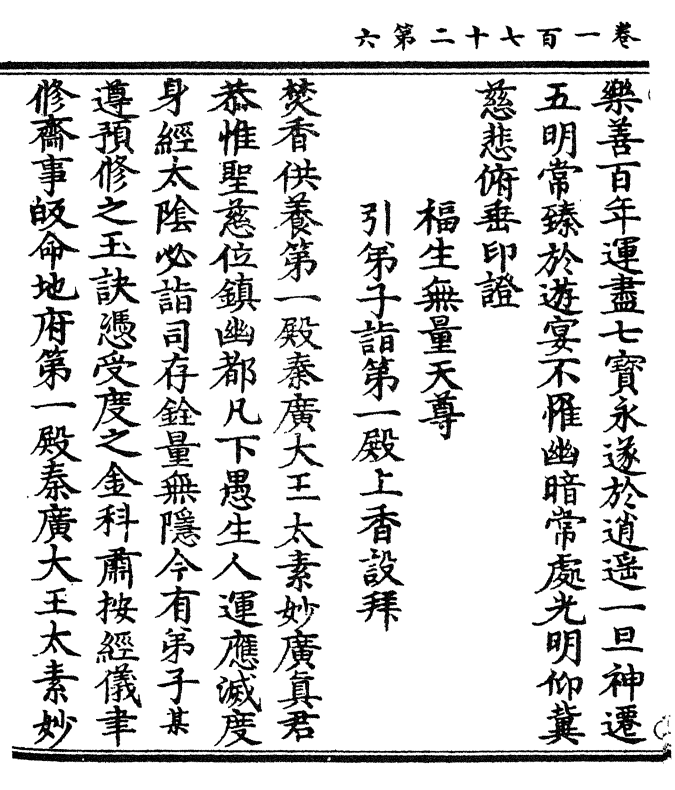 卷一百七十二第六
樂善百年運盡七寶永遂於逍遥一旦神遷
五明常臻於遊宴不罹幽暗常處光明仰冀
慈悲俯垂印證
福生無量天尊
引弟子詣第一殿上香設拜
焚香供養第一殿秦廣大王太素妙廣真君
恭惟聖慈位鎮幽都凡下愚生人運應滅度
身經太陰必詣司存銓量無隱今有弟子某
遵預修之玉訣憑受度之金科肅按經儀聿
修齋事皈命地府第一殿秦廣大王太素妙